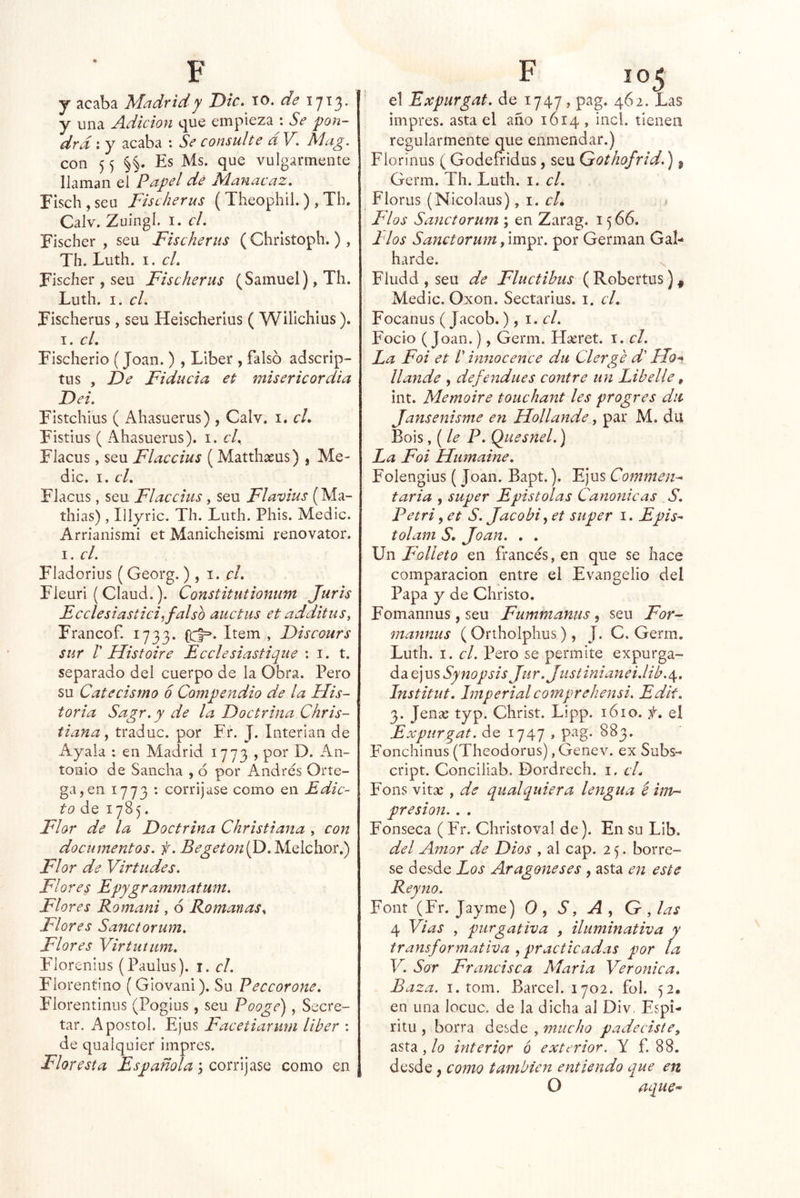 F
y acaba Madrid y Dic. 10. de 1713.
y una Adicion que empieza : Se pon-
drá : y acaba : Se consulte á V. Mag.
con 55 §§. Es Ms. que vulgarmente
llaman el Papel de Manacaz.
Fisch, seu Fischerus (Theophil.), Th.
Calv. Zuingl. 1. cl.
Fischer, seu Fischerus (Christoph.),
Th. Luth. 1. cl.
Fischer, seu Fischerus (Samuel), Th.
Luth. 1. cl.
Fischerus, seu Heischerius (Wilichius).
1. cl.
Fischerio (Joan.), Liber, falsò adscrip-
tus, De Fiducia et misericordia
Dei.
Fistchius (Ahasuerus), Calv. 1. cl.
Fistius (Ahasuerus). 1. cl.
Flacus, seu Flaccius (Matthæus), Me-
dic. 1. cl.
Flacus, seu Flaccius, seu Flavius (Ma-
thias), Illyric. Th. Luth. Phis. Medic.
Arrianismi et Manicheismi renovator.
1. cl.
Fladorius (Georg.), 1. cl.
Fleuri (Claud.). Constitutionum Juris
Ecclesiastici, falsò auctus et additus,
Francof. 1733. ☞. Item, Discours
sur l' Histoire Ecclesiastique : 1. t.
separado del cuerpo de la Obra. Pero
su Catecismo ó Compendio de la His-
toria Sagr. y de la Doctrina Chris-
tiana, traduc. por Fr. J. Interian de
Ayala : en Madrid 1773, por D. An-
tonio de Sancha, ó por Andrés Orte-
ga, en 1773 : corrijase como en Edic-
to de 1785.
Flor de la Doctrina Christiana, con
documentos. ℣. Begeton (D. Melchor.)
Flor de Virtudes.
Flores Epygrammatum.
Flores Romani, ó Romanas.
Flores Sanctorum.
Flores Virtutum.
Florenius (Paulus). 1. cl.
Florentino (Giovani). Su Peccorone.
Florentinus (Pogius, seu Pooge), Secre-
tar. Apostol. Ejus Facetiarum liber :
de qualquier impres.
Floresta Española; corrijase como en
F 105
el Expurgat. de 1747, pag. 462. Las
impres. asta el año 1614, incl. tienen
regularmente que enmendar.)
Florinus (Godefridus, seu Gothofrid.),
Germ. Th. Luth. 1. cl.
Florus (Nicolaus), 1. cl.
Flos Sanctorum; en Zarag. 1566.
Flos Sanctorum, impr. por German Gal-
harde.
Fludd, seu de Fluctibus (Robertus),
Medic. Oxon. Sectarius. 1. cl.
Focanus (Jacob.), 1. cl.
Focio (Joan.), Germ. Hæret. 1. cl.
La Foi et l' innocence du Clergè d' Ho-
llande, defendues contre un Libelle,
int. Memoire touchant les progres du
Jansenisme en Hollande, par M. du
Bois, (le P. Quesnel.)
La Foi Humaine.
Folengius (Joan. Bapt.). Ejus Commen-
taria, super Epistolas Canonicas S.
Petri, et S. Jacobi, et super 1. Epis-
tolam S. Joan. . .
Un Folleto en francés, en que se hace
comparacion entre el Evangelio del
Papa y de Christo.
Fomannus, seu Fummanus, seu For-
mannus (Ortholphus), J. C. Germ.
Luth. 1. cl. Pero se permite expurga-
da ejus Synopsis Jur. Justinianei. lib. 4.
Institut. Imperial comprehensi. Edit.
3. Jenæ typ. Christ. Lipp. 1610. ℣. el
Expurgat. de 1747, pag. 883.
Fonchinus (Theodorus), Genev. ex Subs-
cript. Conciliab. Dordrech. 1. cl.
Fons vitæ, de qualquiera lengua é im-
presion. . .
Fonseca (Fr. Christoval de). En su Lib.
del Amor de Dios, al cap. 25. borre-
se desde Los Aragoneses, asta en este
Reyno.
Font (Fr. Jayme) O, S, A, G, las
4 Vias, purgativa, iluminativa y
transformativa, practicadas por la
V. Sor Francisca Maria Veronica.
Baza. 1. tom. Barcel. 1702. fol. 52.
en una locuc. de la dicha al Div. Espi-
ritu, borra desde, mucho padeciste,
asta, lo interior ó exterior. Y f. 88.
desde, como tambien entiendo que en
O aque-